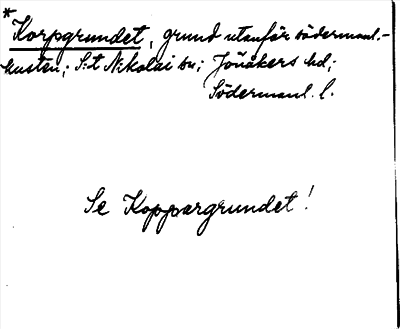 *
Korpgrundet, grund utanför södermanl.-
kusten; S:t Nikolai sn; Jönåkers hd;
Södermanl. l.
Se Koppargrundet!